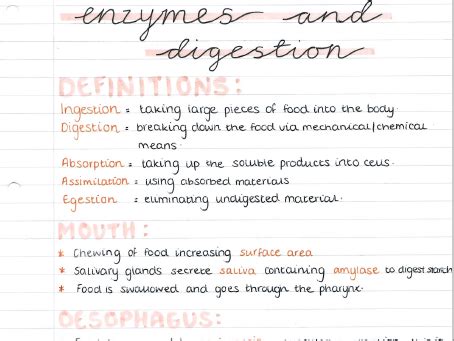 enzymes and
digestion
DEFINITIONS:
Ingestion = taking large pieces of food into the body.
Digestion = breaking down the food via mechanical/chemical
means.
Absorption = taking up the soluble products into cells.
Assimilation = using absorbed materials
Egestion = eliminating undigested material.
MOUTH:
* Chewing of food increasing surface area
* Salivary glands secrete saliva containing amylase to digest starch
* Food is swallowed and goes through the pharynx.
OESOPHAGUS: